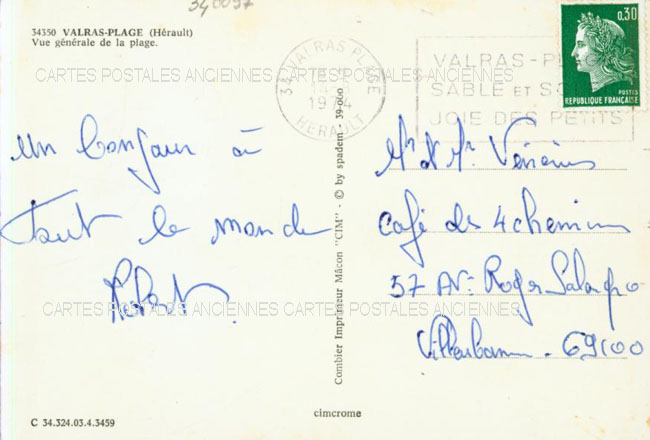 340097
34350 VALRAS-PLAGE (Hérault)
Vue générale de la plage.
un bonjour à
tout le monde
Robert
34 VALRAS PLAGE
1974
HERAULT
VALRAS-PLAGE
SABLE ET SOLEIL
JOIE DES PETITS
0,30
POSTES
REPUBLIQUE FRANÇAISE
Mr et Mr
café des 4 chemins
57 Av. Roger Salengro
Villeurbanne - 69100
Combier Imprimeur Mâcon "CIM" - © by spadem - 39-000
CARTES POSTALES ANCIENNES CARTES POSTALES ANCIENNES
CARTES POSTALES ANCIENNES CARTES POSTALES ANCIENNES
C 34.324.03.4.3459
cimcrome